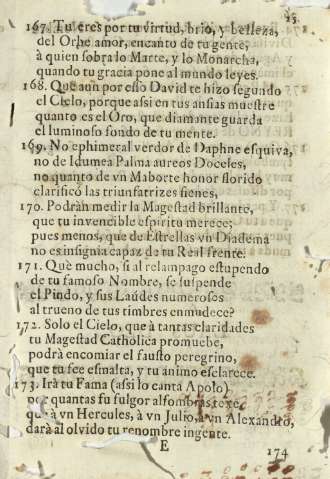 25
167. Tu eres por tu virtud, brio, y belleza,
del Orbe amor, encanto de tu gente,
à quien sobra lo Marte, y lo Monarcha,
quando tu gracia pone al mundo leyes.
168. Que aun por esso David te hizo segundo
el Cielo, porque assi en tus ansias muestre
quanto es el Oro, que diamante guarda
el luminoso fondo de tu mente.
169. No ephimeral verdor de Daphne esquiva,
no de Idumea Palma aureos Doceles,
no quanto de vn Maborte honor florido
clarificò las triunfatrizes sienes,
170. Podràn medir la Magestad brillante,
que tu invencible espiritu merece;
pues menos, que de Estrellas vn Diadema
no es insignia capaz de tu Real frente.
171. Què mucho, si al relampago estupendo
de tu famoso Nombre, se suspende
el Pindo, y sus Laùdes numerosos
al trueno de tus timbres enmudece?
172. Solo el Cielo, que à tantas claridades
tu Magestad Catholica promuebe,
podrà encomiar el fausto peregrino,
que tu fee esmalta, y tu animo esclarece.
173. Irà tu Fama (assi lo canta Apolo)
por quantas su fulgor alfombras texe,
que à vn Hercules, à vn Julio, à vn Alexandro,
darà al olvido tu renombre ingente.
E
174